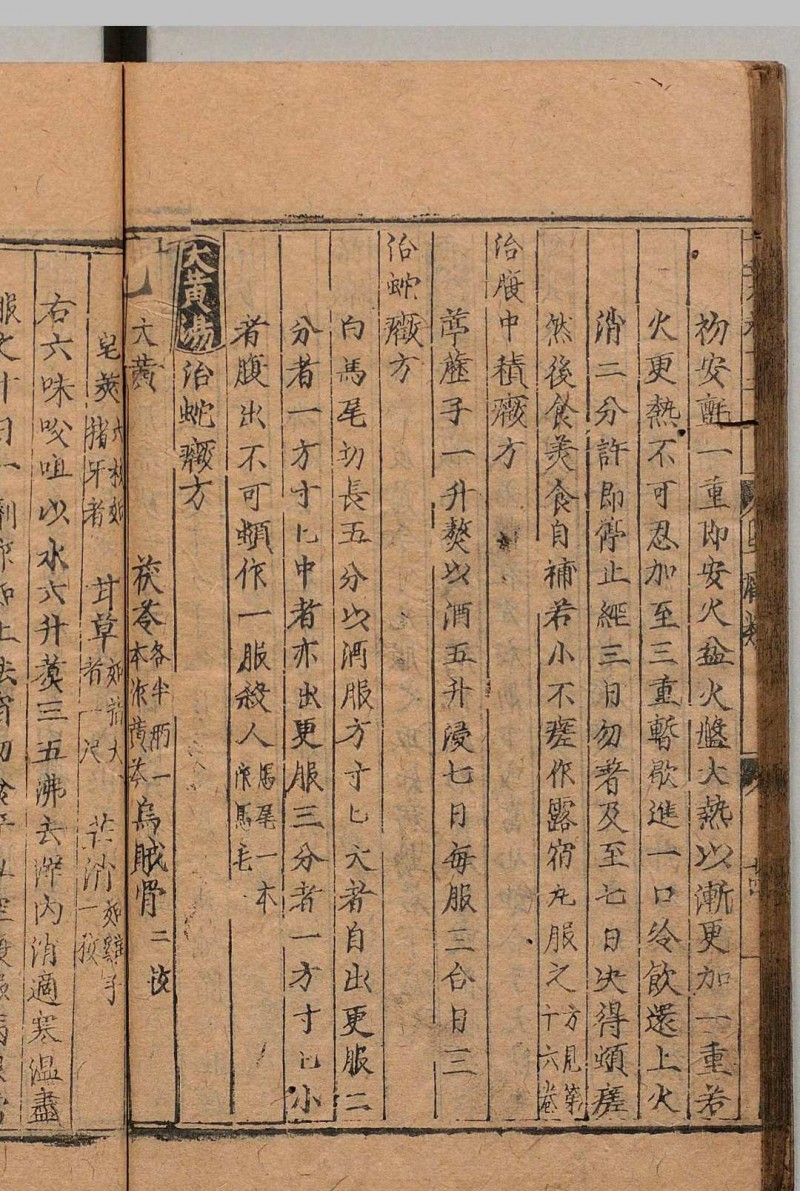 物安氈一重即安火盆火盤大熱以漸更加一重若
火更熱不可忍加至三重暫歇進一口冷飲還上火
消二分許即停止經三日勿著及至七日决得頓瘥
然後食美食自補若小不瘥作露宿丸服之方見第十六卷
治腹中積癥方
葶藶子一升熬以酒五升浸七日每服三合日三
治蛇癥方
白馬尾切長五分以酒服方寸匕大者自出更服二
分者一方寸匕中者亦出更服三分者一方寸匕小
者腹出不可頓作一服殺人馬尾一本作馬毛
大黄湯治蛇癥方
大黄 茯苓各半兩一本作黄芩 烏賊骨二枚
皂莢六枚如猪牙者 甘草如指大者一尺 芒消如雞子一枚
右六味㕮咀以水六升煮三五沸去滓内消適寒温盡
服之十日一劑